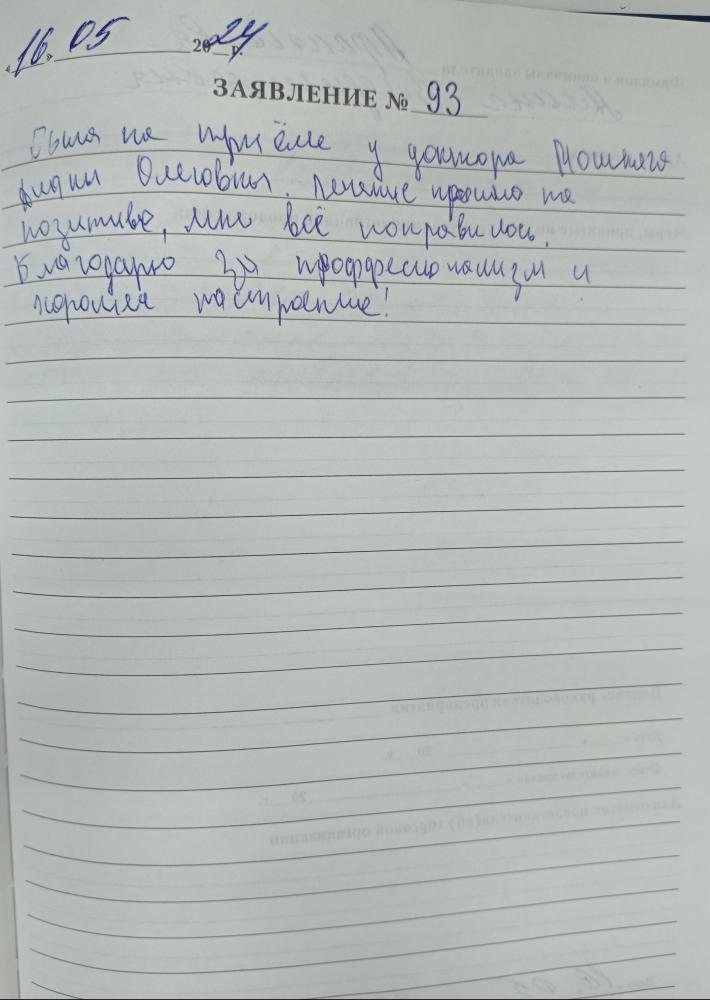 «16» 05 2024 г.
ЗАЯВЛЕНИЕ № 93
Была на приёме у доктора
Олеговны. Лечение прошло на
позитиве, мне всё понравилось.
Благодарю за проффесионализм и
хорошее настроение!